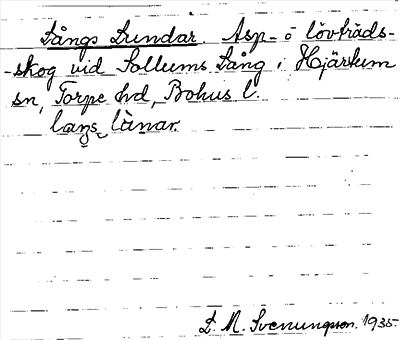 Långs Lundar Asp- o lövträds-
-skog vid Sollums Lång i Hjärtum
sn, Torpe hd, Bohus l.
lånar.
L. M. Svenungsson. 1935.